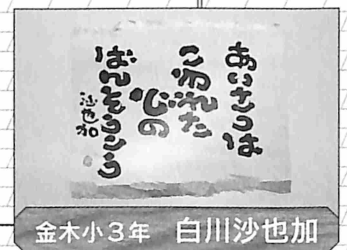 あいさつは
こわれた
心の
ばんそうこう
沙也加
金木小3年 白川沙也加